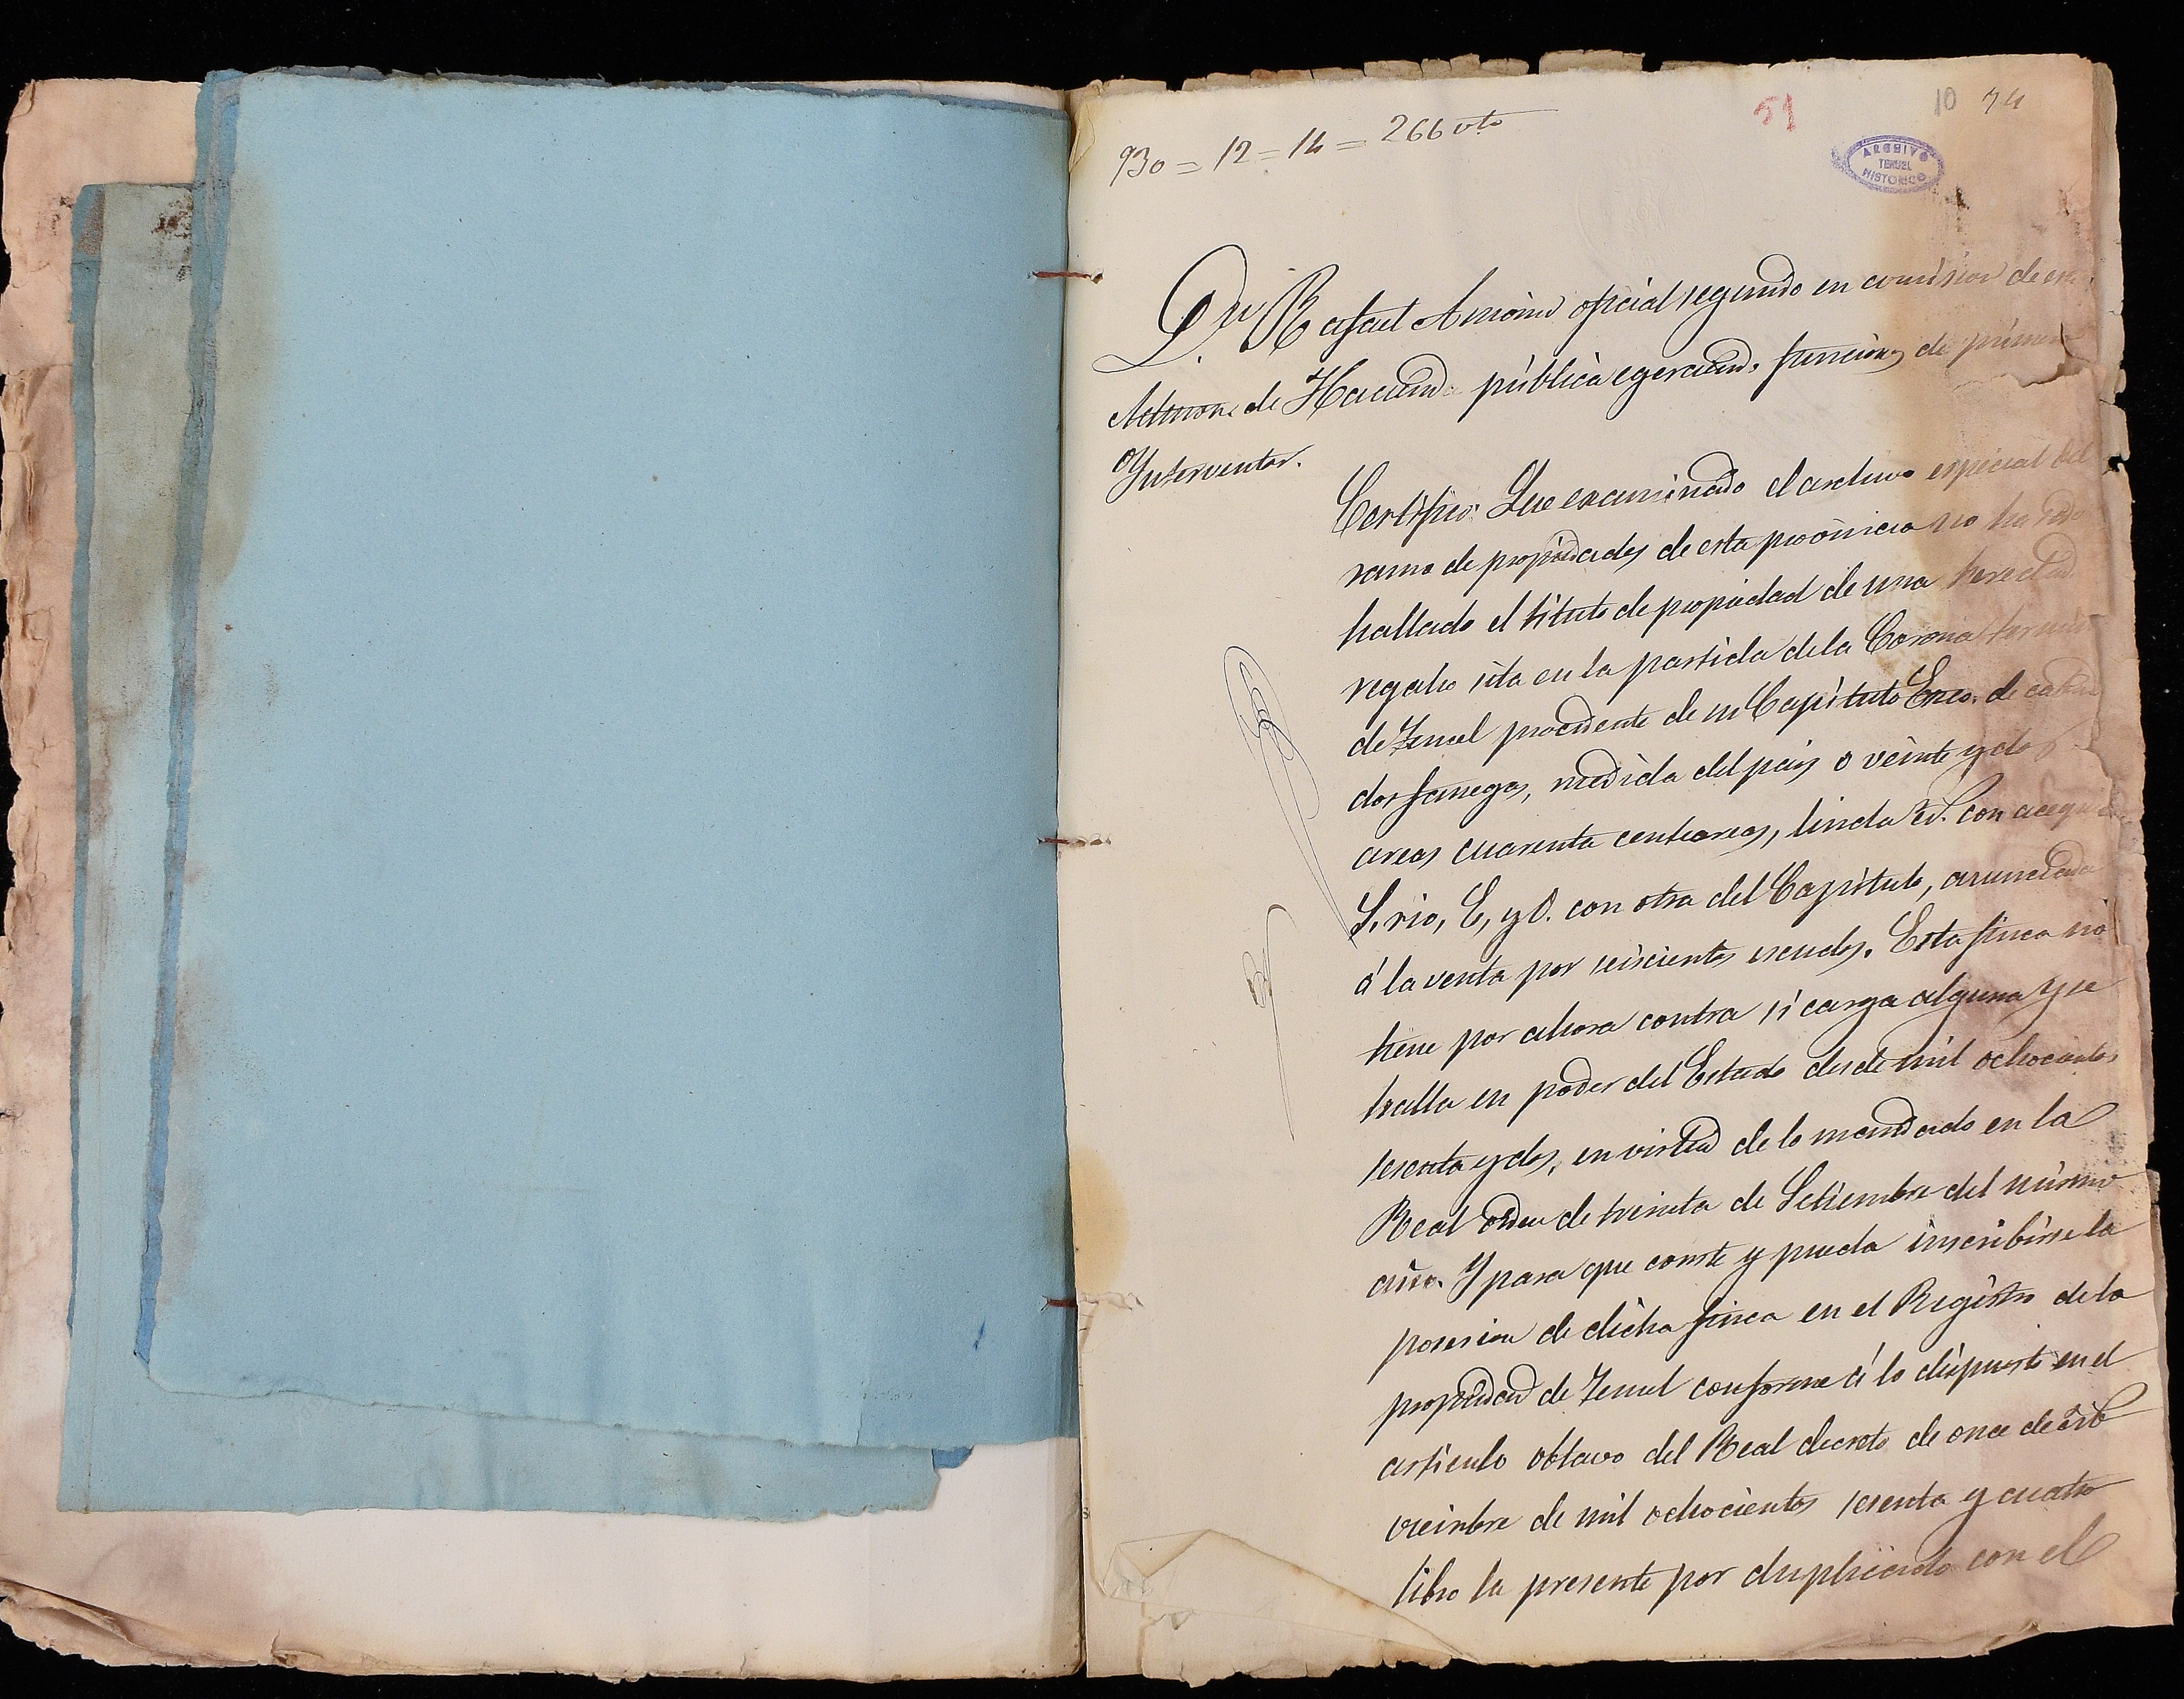 930 = 12 = 14 = 266 vto
51
10 74
ARCHIVO
TERUEL
HISTORICO
Dn Rafael oficial segundo en comision de
de Hacienda pública egerciendo funciones de primero
Ynterventor.
Certifico: Que examinado el archivo especial del
ramo de propiedades de esta provincia no ha sido
hallado el titulo de propiedad de una heredad
regadio sita en la partida de la termino
de Teruel procedente de su Capitulo Ecco. de cabida
dos fanegas, medida del pais o veinte y dos
areas cuarenta centiareas, linda N. con acequia
S. rio, E, y O. con otra del Capitulo, anunciada
á la venta por seiscientos escudos. Esta finca no
tiene por ahora contra si carga alguna y se
halla en poder del Estado desde mil ochocientos
sesenta y dos, en virtud de lo mandado en la
Real orden de treinta de Setiembre del mismo
año. Y para que conste y pueda inscribirse la
posesion de dicha finca en el Registro de la
propiedad de Teruel conforme á lo dispuesto en el
articulo octavo del Real decreto de once de
viembre de mil ochocientos sesenta y cuatro
libro la presente por duplicado con el